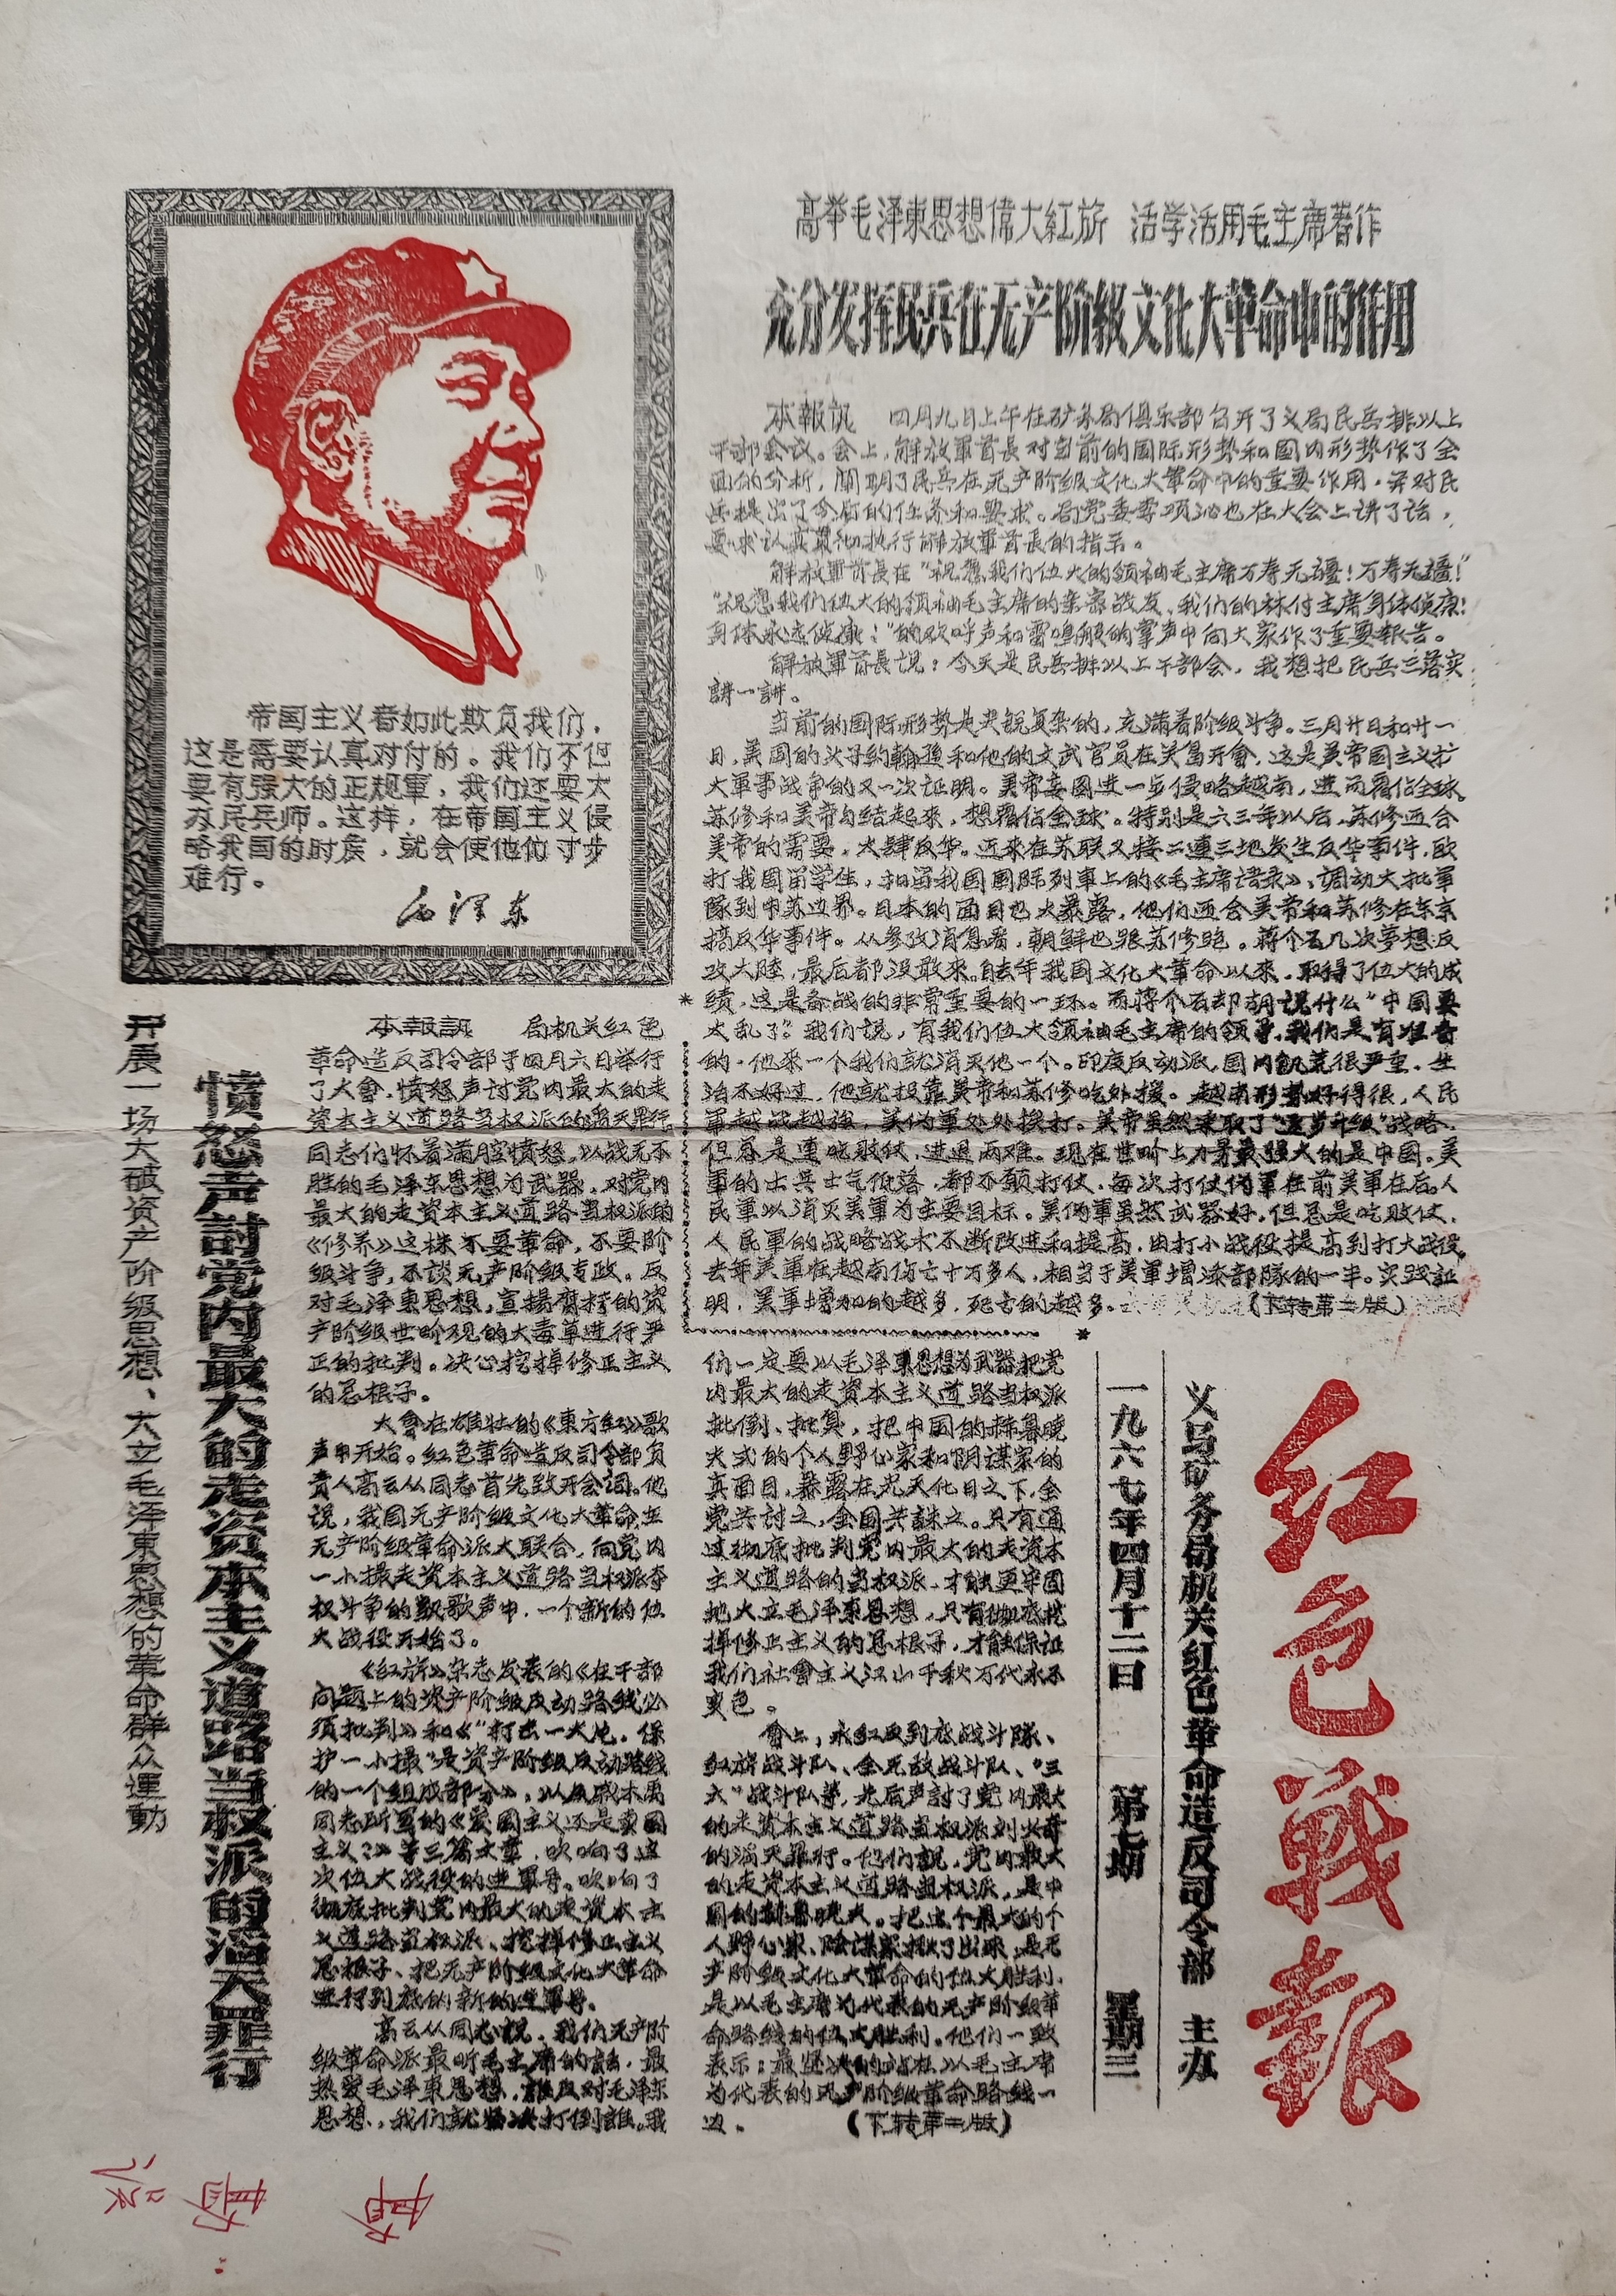 高举毛泽東思想偉大紅旂 活学活用毛主席著作
充分发挥民兵在无产阶级文化大革命中的作用
帝国主义者如此欺负我们，
这是需要认真对付的。我们不但
要有强大的正规軍，我们还要大
办民兵师。这样，在帝国主义侵
略我国的时候，就会使他们寸步
难行。
毛泽东
本報訊 四月九日上午在矿务局俱乐部召开了义局民兵排以上
干部会议。会上，解放軍首長对当前的国际形势和国内形势作了全
面的分析，闡明了民兵在无产阶级文化大革命中的重要作用，并对民
兵提出了今后的任务和要求。局党委李项沁也在大会上讲了话，
要求认真贯彻执行解放軍首長的指示。
解放軍首長在“祝愿我们伟大的領袖毛主席万寿无疆！万寿无疆！”
“祝愿我们伟大的領袖毛主席的亲密战友、我们的林付主席身体健康！
身体永远健康！”的欢呼声和雷鳴般的掌声中向大家作了重要報告。
解放軍首長说：今天是民兵排以上干部会，我想把民兵三落实
講一講。
当前的国际形势是尖銳复杂的，充滿着阶级斗争。三月廿日和廿一
日，美国的头子约翰逊和他的文武官员在关島开會，这是美帝国主义扩
大軍事战争的又一次证明。美帝妄图进一步侵略越南，进而霸佔全球。
苏修和美帝勾结起来，想霸佔全球。特别是六三年以后，苏修迎合
美帝的需要，大肆反华。近来在苏联又接二連三地发生反华事件，殴
打我国留学生，扣留我国国际列車上的《毛主席语录》，调动大批軍
隊到中苏边界。日本的面目也大暴露，他们迎合美帝和苏修在东京
搞反华事件。从参攷消息看，朝鲜也跟苏修跑。蒋介石几次夢想反
攻大陸，最后都没敢来。自去年我国文化大革命以来，取得了伟大的成
绩，这是备战的非常重要的一环。而蒋介石却胡说什么“中国要
大乱了”。我们说，有我们伟大領袖毛主席的领导，我们是有准备
的。他来一个我们就消灭他一个。印度反动派，国内飢荒很严重，生
活不好过，他就投靠美帝和苏修吃外援。越南形势好得很，人民
軍越战越強，美伪軍处处挨打。美帝虽然采取了“逐步升级”战略，
但总是連吃败仗，进退两难。现在世界上力量最强大的是中国。美
軍的士兵士气低落，都不願打仗，每次打仗伪軍在前美軍在后。人
民軍以消灭美軍为主要目标。美伪軍虽然武器好，但总是吃败仗，
人民軍的战略战术不断改进和提高，由打小战役提高到打大战役。
去年美軍在越南伤亡十万多人，相当于美軍增添部隊的一半。实践証
明，美軍增加的越多，死亡的越多。（下转第二版）
开展一场大破资产阶级思想、大立毛泽東思想的革命群众運動
愤怒声討党内最大的走资本主义道路当权派的滔天罪行
本報訊 局机关红色
革命造反司令部于四月六日举行
了大會，愤怒声讨党内最大的走
资本主义道路当权派的滔天罪行。
同志们怀着满腔愤怒，以战无不
胜的毛泽东思想为武器，对党内
最大的走资本主义道路当权派的
《修养》这株不要革命，不要阶
级斗争，不談无产阶级专政。反
对毛泽東思想，宣揚腐朽的资
产阶级世界观的大毒草进行严
正的批判。决心挖掉修正主义
的总根子。
大會在雄壮的《東方红》歌
声中开始。红色革命造反司令部负
责人高云从同志首先致开会词。他
说，我国无产阶级文化大革命，在
无产阶级革命派大联合，向党内
一小撮走资本主义道路当权派夺
权斗争的凱歌声中，一个新的伟
大战役开始了。
《红旂》杂志发表的《在干部
问题上的资产阶级反动路线必
须批判》和《“打击一大片，保
护一小撮”是资产阶级反动路线
的一个组成部分》，以及戚本禹
同志所写的《爱国主义还是卖国
主义？》等三篇文章，吹响了这
次伟大战役的进軍号。吹响了
彻底批判党内最大的走资本主
义道路当权派、挖掉修正主义
总根子、把无产阶级文化大革命
进行到底的新的进軍号。
高云从同志说，我们无产阶
级革命派最听毛主席的話，最
热爱毛泽東思想，誰反对毛泽东
思想，我们就坚决打倒誰。我
们一定要以毛泽東思想为武器把党
内最大的走资本主义道路当权派
批倒、批臭，把中国的赫魯曉
夫式的个人野心家和阴谋家的
真面目，暴露在光天化日之下，全
党共討之，全国共誅之。只有通
过彻底批判党内最大的走资本
主义道路的当权派，才能更牢固
地大立毛泽東思想，只有彻底挖
掉修正主义的总根子，才能保证
我们社會主义江山千秋万代永不
变色。
會上，永红反到底战斗隊、
红旂战斗队、全无敌战斗队、“三
大”战斗队等，先后声討了党内最大
的走资本主义道路当权派刘少奇
的滔天罪行。他们說，党内最大
的走资本主义道路当权派，是中
国的赫魯曉夫。把这个最大的个
人野心家、陰謀家揪了出来，是无
产阶级文化大革命的伟大胜利，
是以毛主席为代表的无产阶级革
命路线的伟大胜利。他们一致
表示：最坚决的站在以毛主席
为代表的无产阶级革命路线一
边。 （下转第二版）
红色戰報
义马矿务局机关红色革命造反司令部 主办
一九六七年四月十二日 第七期 星期三